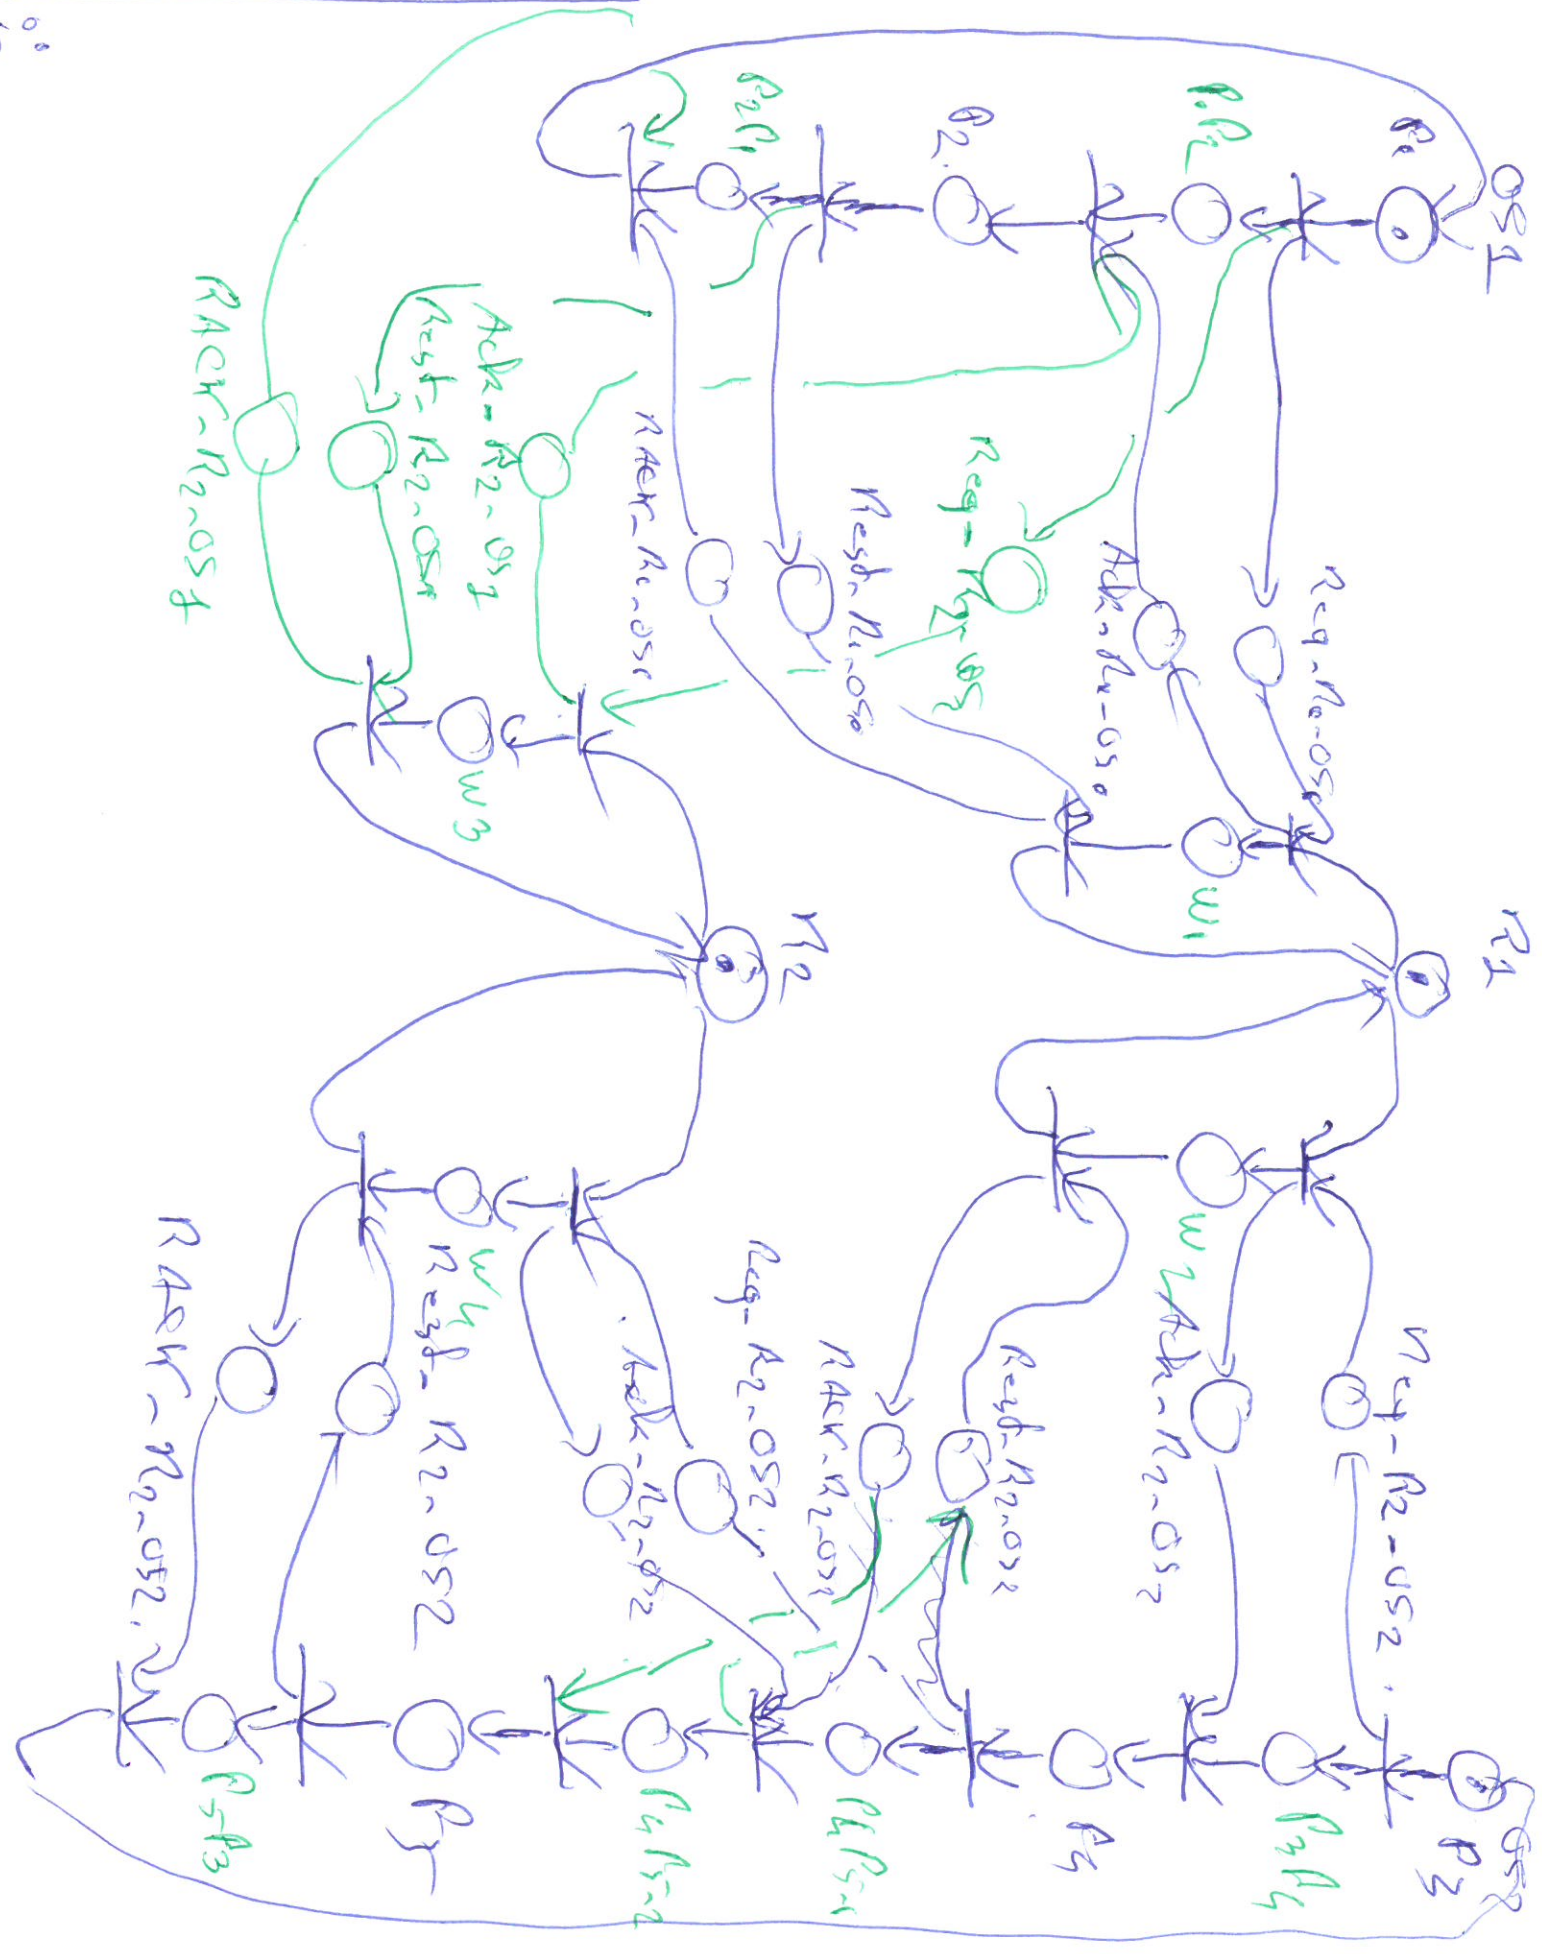 OS1
P1
P1P2
P2
P2P1
Req-R1-OS1
Ack-R1-OS1
Req-R2-OS1
Rest-R1-OS1
RAck-R1-OS1
Ack-R2-OS1
Rest-R2-OS1
RAck-R2-OS1
W1
W3
R1
R2
W2
W4
Req-R2-OS2
Ack-R2-OS2
Rest-R2-OS2
RAck-R2-OS2
Req-R2-OS2
Ack-R2-OS2
Rest-R2-OS2
RAck-R2-OS2
OS2
P3
P3P4
P4
P4P5-1
P4P5-2
P5
P5P3